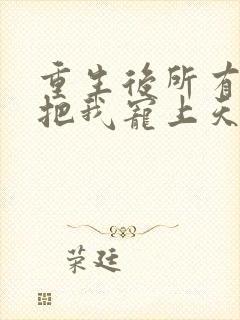 重生後所有
把我寵上天
荣廷